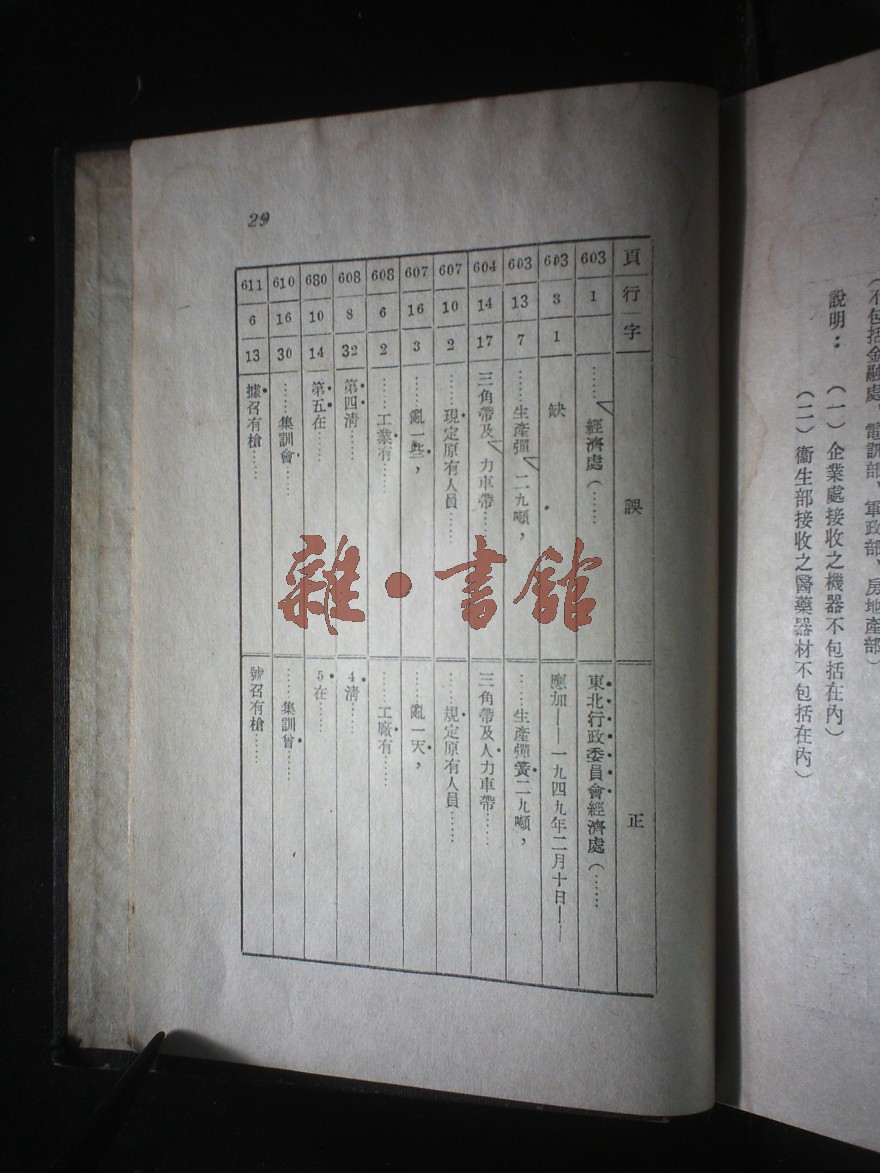 (不包括金融處、電訊部、軍政部、房地產部)
說明：
(一) 企業處接收之機器不包括在內)
(二) 衞生部接收之醫藥器材不包括在內)
29
頁 行 字 誤 正
603 1 ……經濟處(…… 東北行政委員會經濟處(……
603 3 1 缺 應加——一九四九年二月十日——
603 13 7 ……生產彈 二九噸， ……生產彈簧二九噸，
604 14 17 三角帶及 力車帶…… 三角帶及人力車帶……
607 10 2 ……現定原有人員…… ……規定原有人員……
607 16 3 ……亂一些， ……亂一天，
608 6 2 ……工業有…… ……工廠有……
608 8 32 第四淸…… 4淸……
680 10 14 第五在…… 5在……
610 16 30 ……集訓會…… ……集訓曾……
611 6 13 據召有槍…… 號召有槍……
雜·書館